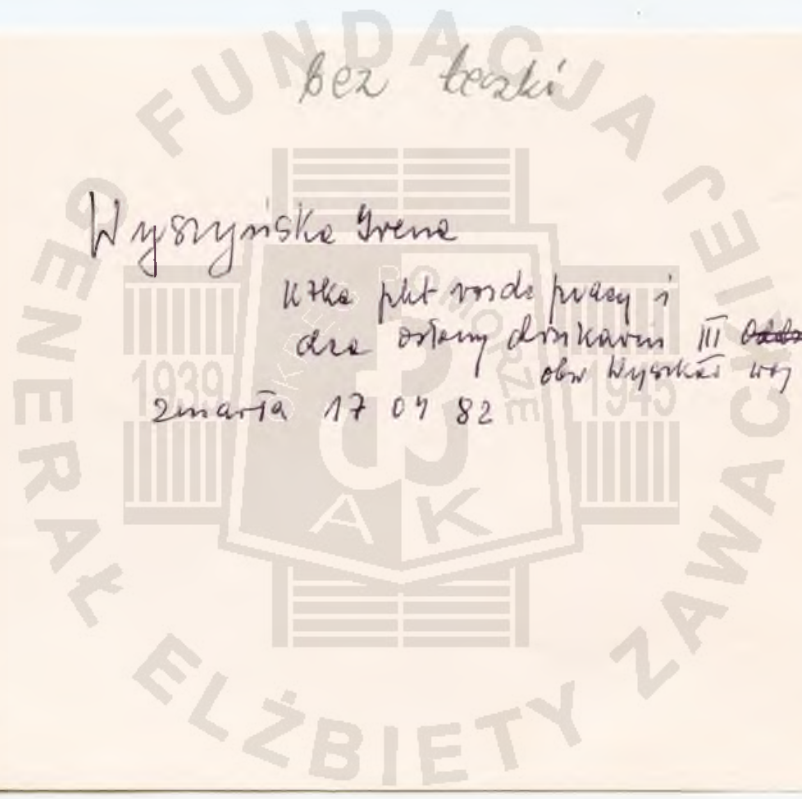 bez teczki
Wyszyńska Irena
k-ka pkt rozdz prasy i
dca osłony drukarni III
obw Wyszków woj
zmarła 17 04 82
FUNDACJA GENERAŁ ELŻBIETY ZAWACKIEJ
OKRĘG POMORZE
1939 1945
AK